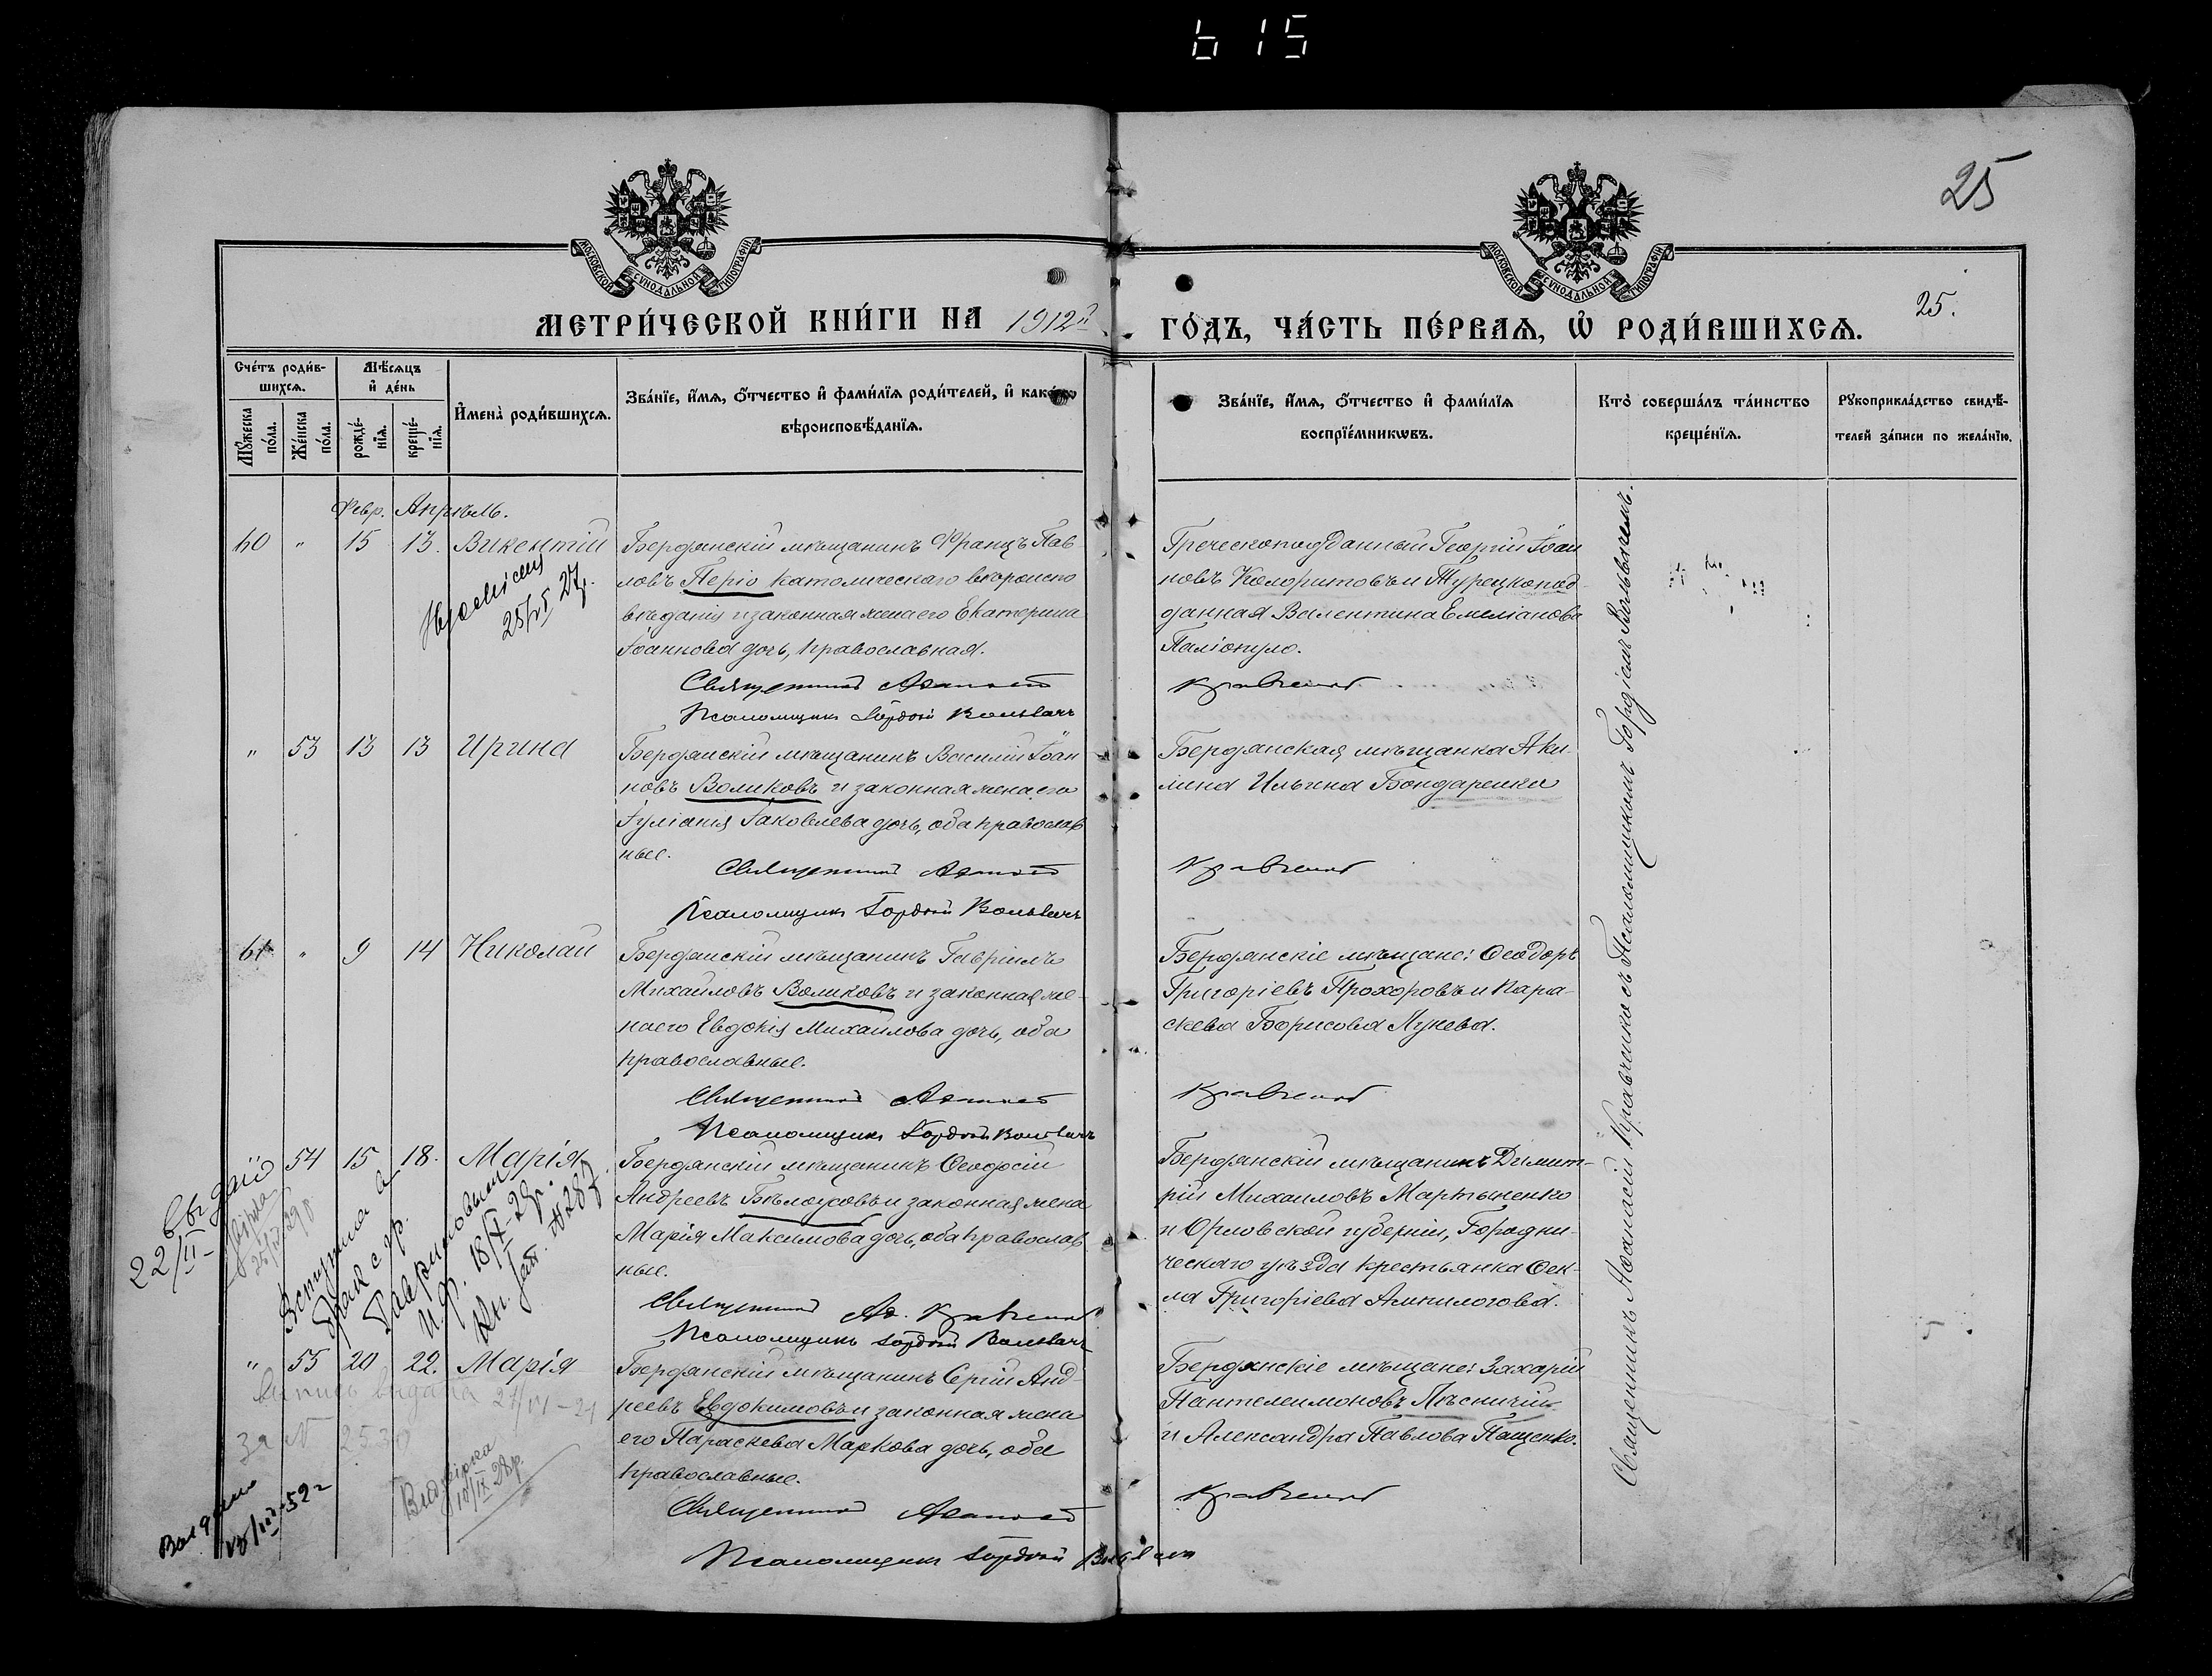 615
25
МОСКОВСКОЙ СѴНОДАЛЬНОЙ ТИПОГРАФІИ
МОСКОВСКОЙ СѴНОДАЛЬНОЙ ТИПОГРАФІИ
МЕТРИ́ЧЕСКОЙ КНИ́ГИ НА 1912й
ГО́ДЪ, ЧА́СТЬ ПЕ́РВАѦ, Ѽ РОДИ́ВШИХСѦ.
25.
Сче́тъ роди́в-
шихсѧ.
Мѣ́сѧцъ
и҆ де́нь
Мꙋ́жеска по́ла.
Же́нска по́ла.
рожде́-нїѧ.
креще́-нїѧ.
И҆мена̀ роди́вшихсѧ.
Зва́нїе, и҆́мѧ, ѻ҆́тчество и҆ фами́лїѧ роди́телей, и҆ како́гѡ
вѣроисповѣ́данїѧ.
Зва́нїе, и҆́мѧ, ѻ҆́тчество и҆ фами́лїѧ
воспрїе́мникѡвъ.
Кто̀ соверша́лъ та́инство
креще́нїѧ.
Рꙋкоприкла́дство свидѣ́-
телей за́писи по жела́нїю.
Февр. Апрѣль.
60 " 15 13. Викентій
Бердянскій мѣщанинъ Францъ Пав-
ловъ Періо католическаго вѣроиспо
вѣданія и законная жена его Екатерина
Іоаннова дочь, православная.
Священникъ Аѳанасій
Псаломщикъ Гордій Вольвачъ
Греческоподданный Георгій Іоан
новъ Колоритовъ и Турецкопод-
данная Валентина Емеліанова
Паліопуло.
Кравченко
" 53 13 13 Ирина
Бердянскій мѣщанинъ Василій Іоан
новъ Воликовъ и законная жена его
Іуліанія Іаковлева дочь, оба православ
ные.
Священникъ Аѳанасій
Псаломщикъ Гордій Вольвачъ
Бердянская мѣщанка Аки-
лина Ильина Бондаренко
Кравченко
61 " 9 14 Николай
Бердянскій мѣщанинъ Гавріилъ
Михайловъ Воликовъ и законная же-
на его Евдокія Михайлова дочь, оба
православные.
Священникъ Аѳанасій
Псаломщикъ Гордій Вольвачъ
Бердянскіе мѣщане: Ѳеодоръ
Григоріевъ Прохоровъ и Пара-
скева Борисова Лунева.
Кравченко
54 15 18. Марія
Бердянскій мѣщанинъ Ѳеодосій
Андреевъ Бѣлоусовъ и законная жена
Марія Максимова дочь, оба православ
ные.
Священникъ Аѳ. Кравченко
Псаломщикъ Гордій Вольвачъ
Бердянскій мѣщанинъ Димит-
рій Михайловъ Мартыненко
и Орловской губерніи,
ческаго уѣзда крестьянка Ѳек-
ла Григоріева
22/II-
Вступила в
брак с гр.
" 55 20 22. Марія
Бердянскій мѣщанинъ Сергій Анд-
реевъ Евдокимовъ и законная жена
его Параскева Маркова дочь, оба
православные.
Священникъ Аѳанасій
Псаломщикъ Гордій Вольвачъ
Бердянскіе мѣщане: Захарій
Пантелеимоновъ Лѣсничій
и Александра Павлова Пащенко.
Кравченко
за № 2530
Священникъ Аѳанасій Кравченко съ Псаломщикомъ Гордіемъ Вольвачемъ.